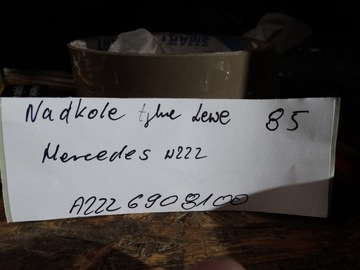 SMART
Nadkole tylne Lewe 85
Mercedes W222
A222 690 81 00